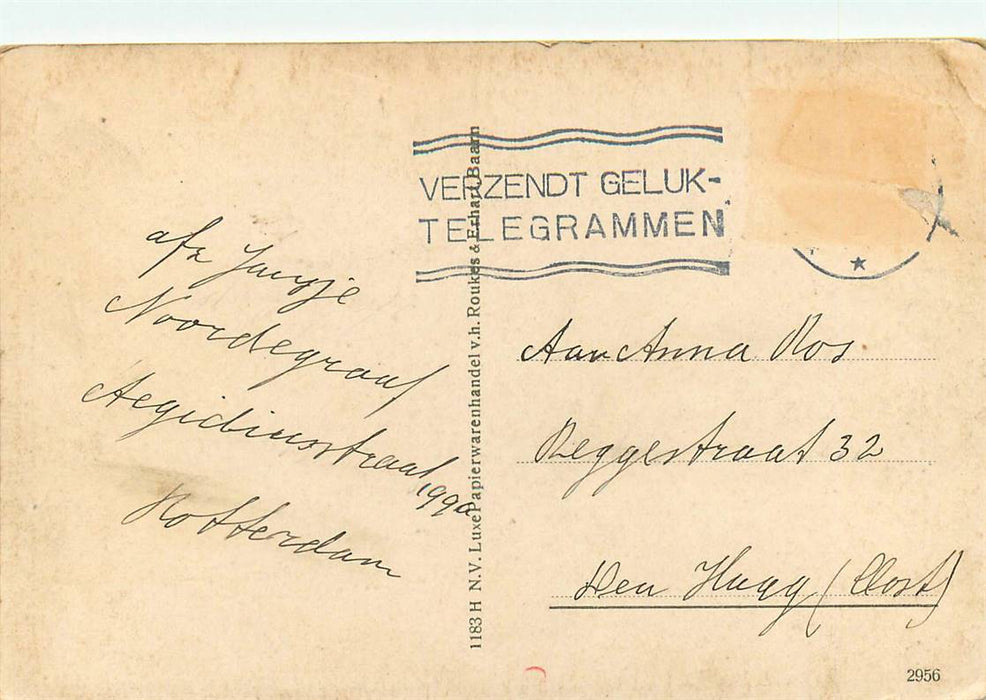 VERZENDT GELUK-
TELEGRAMMEN
afz
Noordegraaf
Aegidiusstraat
199a
Rotterdam
1183 H N.V. Luxe Papierwarenhandel v.h. Roukes & Erhart, Baarn
Aan Anna Ros
Reggestraat 32
Den Haag (Oost)
2956